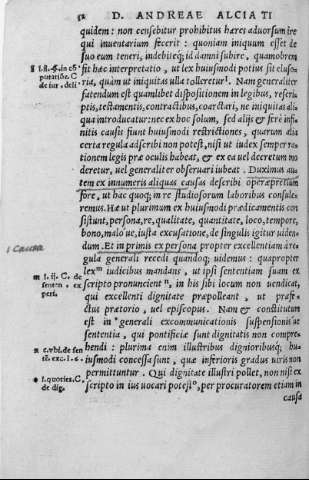 52 D. ANDREAE ALCIATI
quidem: non censebitur prohibitus hæres aduorsum ire
qui inuentarium fecerit: quoniam iniquum esset de
suo eum teneri, indebitéq; id damni subire, quamobrem
sit hac interpretatio, ut lex huiusmodi potius sit elusoria,
quàm ut iniquitas ulla tolleretur. Nam generaliter
fatendum est quamlibet dispositionem in legibus, rescri-
ptis, testamentis, contractibus, coarctari, ne iniquitas ali-
qua introducatur: nec ex hoc solum, sed alijs & ferè infi-
nitis causis fiunt huiusmodi restrictiones, quarum alia
certa regula adscribi non potest, nisi ut iudex semper ra-
tionem legis præ oculis habeat, & ex ea uel decretum mo
deretur, uel generaliter obseruari iubeat. Duximus au
tem ex innumeris aliquas causas describi operæpretium
fore, ut hac quoq; in re studiosorum laboribus consule-
remus. Hæ ut plurimum ex huiusmodi prædicamentis con
sistunt, persona, re, qualitate, quantitate, loco, tempore,
bono, malo ue, iusta excusatione, de singulis igitur uiden-
dum. Et in primis ex persona propter excellentiam à re-
gula generali recedi quandoq; uidemus: quapropter
lex iudicibus mandans, ut ipsi sententiam suam ex
scripto pronuncient, in his sibi locum non uendicat,
qui excellenti dignitate præpolleant, ut præfe-
ctus prætorio, uel episcopus. Nam & constitutum
est in generali excommunicationis suspensionis ut
sententia, qui pontificiæ sunt dignitatis non compre-
hendi: plurima enim illustribus dignioribusq; hu-
iusmodi concessa sunt, quæ inferioris gradus uiris non
permittuntur. Qui dignitate illustri pollet, non nisi ex
scripto in ius uocari potest, per procuratorem etiam in
causa
1 Causa
m l. ij. C. de
senten. ex
peri.
l. quoties. C.
de dig.